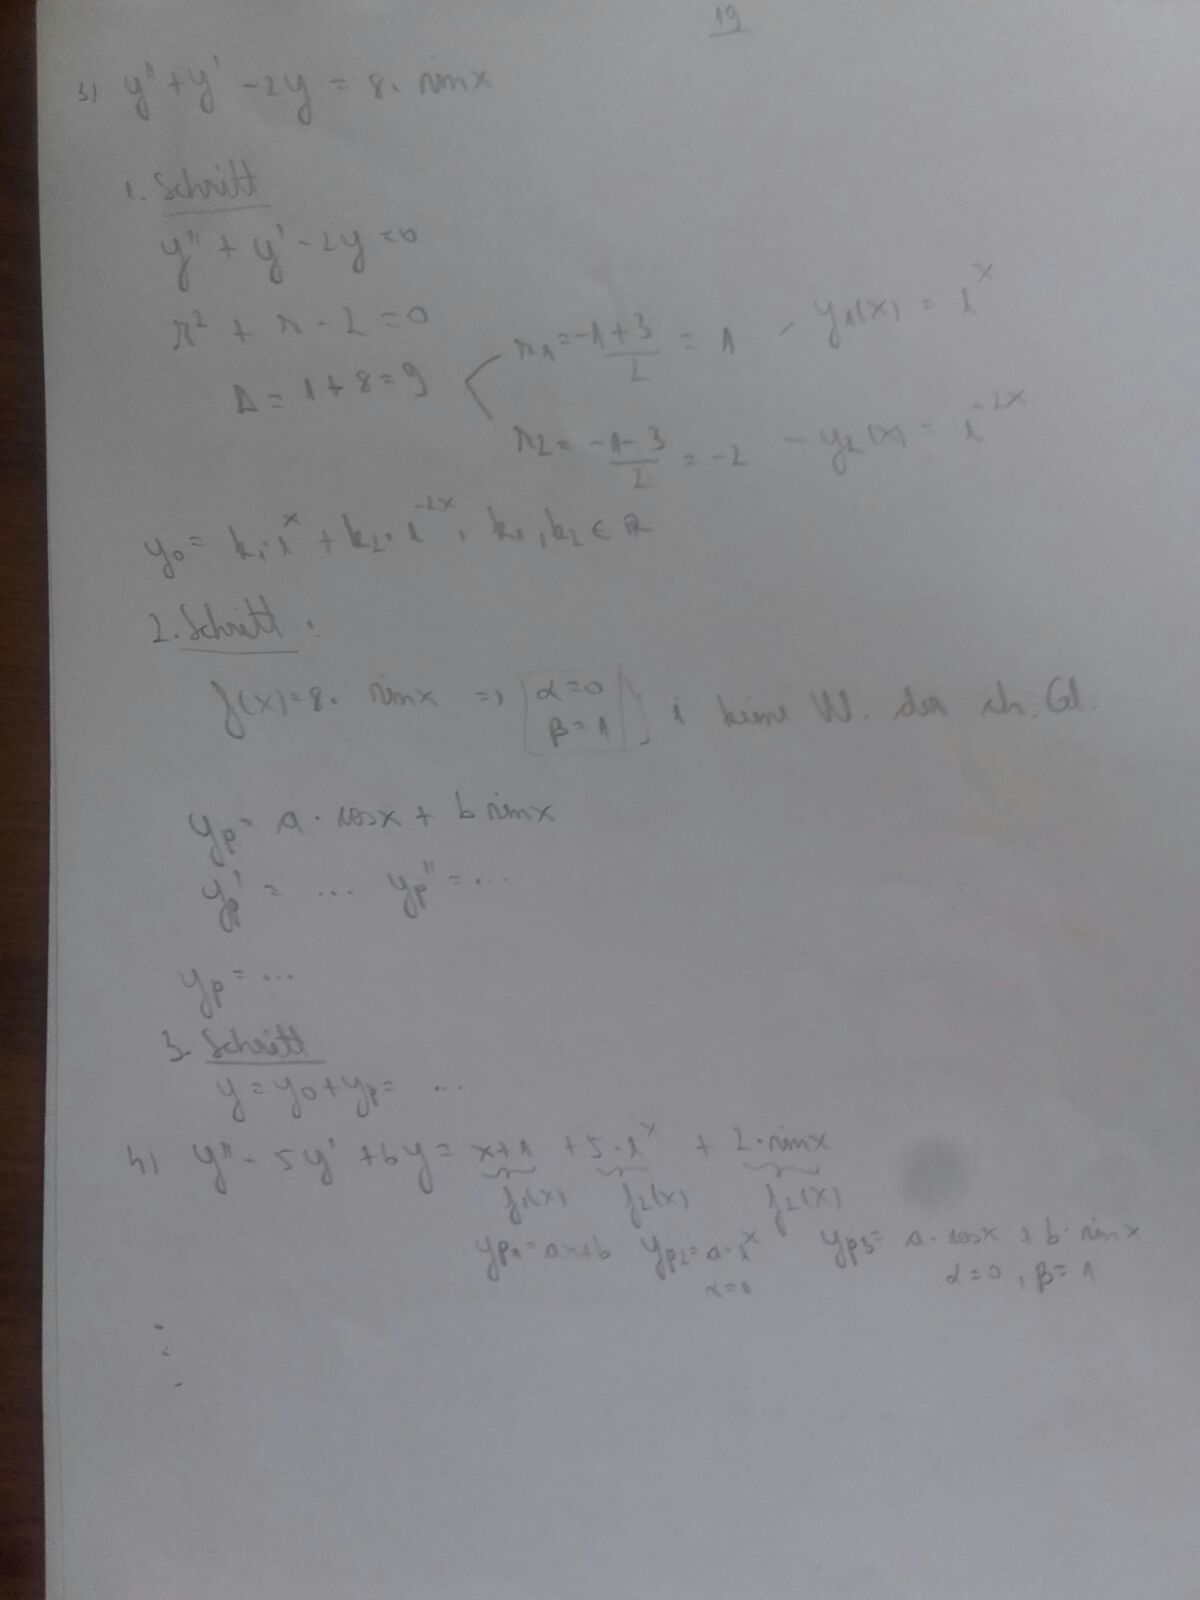 19
3) y'' + y' - 2y = 8. sin x
1. Schritt
y'' + y' - 2y = 0
r² + r - 2 = 0
Δ = 1 + 8 = 9
r₁ = (-1+3)/2 = 1 - y₁(x) = e^x
r₂ = (-1-3)/2 = -2 - y₂(x) = e^(-2x)
y₀ = k₁ e^x + k₂ . e^(-2x), k₁, k₂ ∈ ℝ
2. Schritt .
f(x) = 8. sin x => α = 0
β = 1
i keine W. der ch. Gl.
yp = a . cos x + b sin x
yp' = ... yp'' = ...
yp = ...
3. Schritt
y = y₀ + yp = ...
4) y'' - 5y' + 6y = x+1 + 5.e^x + 2.sin x
f₁(x) f₂(x) f₂(x)
yp₁ = ax+b yp₂ = a.e^x yp₃ = a.cos x + b.sin x
α = 1 α = 0, β = 1